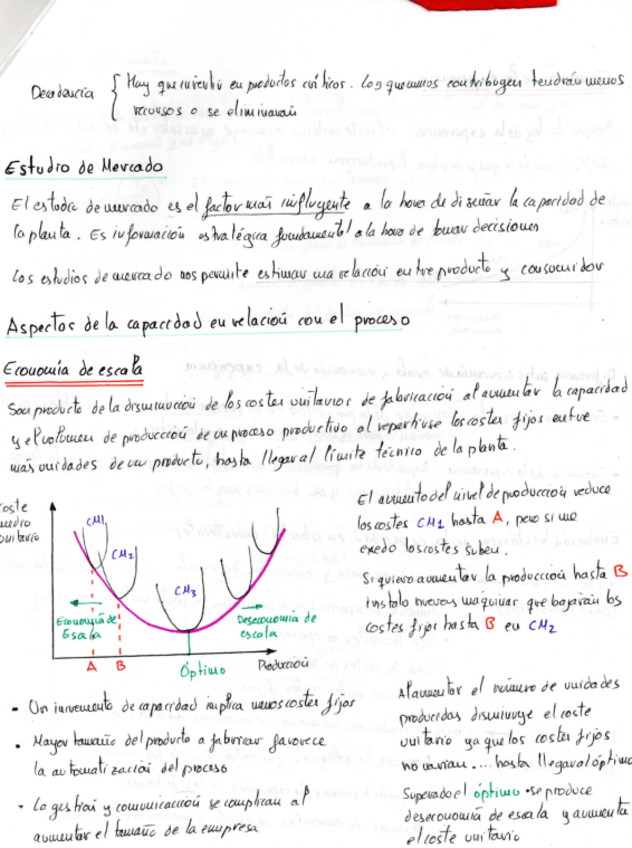 Decadencia { Hay que invertir en productos críticos. Los que menos contribuyen tendrán menos
recursos o se eliminarán
Estudio de Mercado
El estudio de mercado es el factor más influyente a la hora de diseñar la capacidad de
la planta. Es información estratégica fundamental a la hora de tomar decisiones
Los estudios de mercado nos permite estimar una relación entre producto y consumidor
Aspectos de la capacidad en relación con el proceso
Economía de escala
Son producto de la disminución de los costes unitarios de fabricación al aumentar la capacidad
y el volumen de producción de un proceso productivo al repartirse los costes fijos entre
más unidades de un producto, hasta llegar al límite técnico de la planta.
Coste
medio
unitario
CM1
CM2
CM3
Economía de
Escala
Deseconomía de
escala
A
B
Óptimo
Producción
El aumento del nivel de producción reduce
los costes CM1 hasta A, pero si me
exedo los costes suben.
Si quiero aumentar la producción hasta B
instalo nuevas máquinas que bajarán los
costes fijos hasta B en CM2
- Un incremento de capacidad implica menos costes fijos
• Mayor tamaño del producto a fabricar favorece
la automatización del proceso
- La gestión y comunicación se complican al
aumentar el tamaño de la empresa
Al aumentar el número de unidades
producidas disminuye el coste
unitario ya que los costes fijos
no varían .... hasta llegar al óptimo
Superado el óptimo se produce
deseconomía de escala y aumenta
el coste unitario